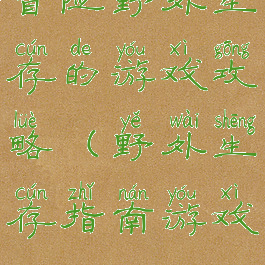 冒险野外生
cún de yóu xì gōng
存的游戏攻
lüè yě wài shēng
略（野外生
cún zhǐ nán yóu xì
存指南游戏